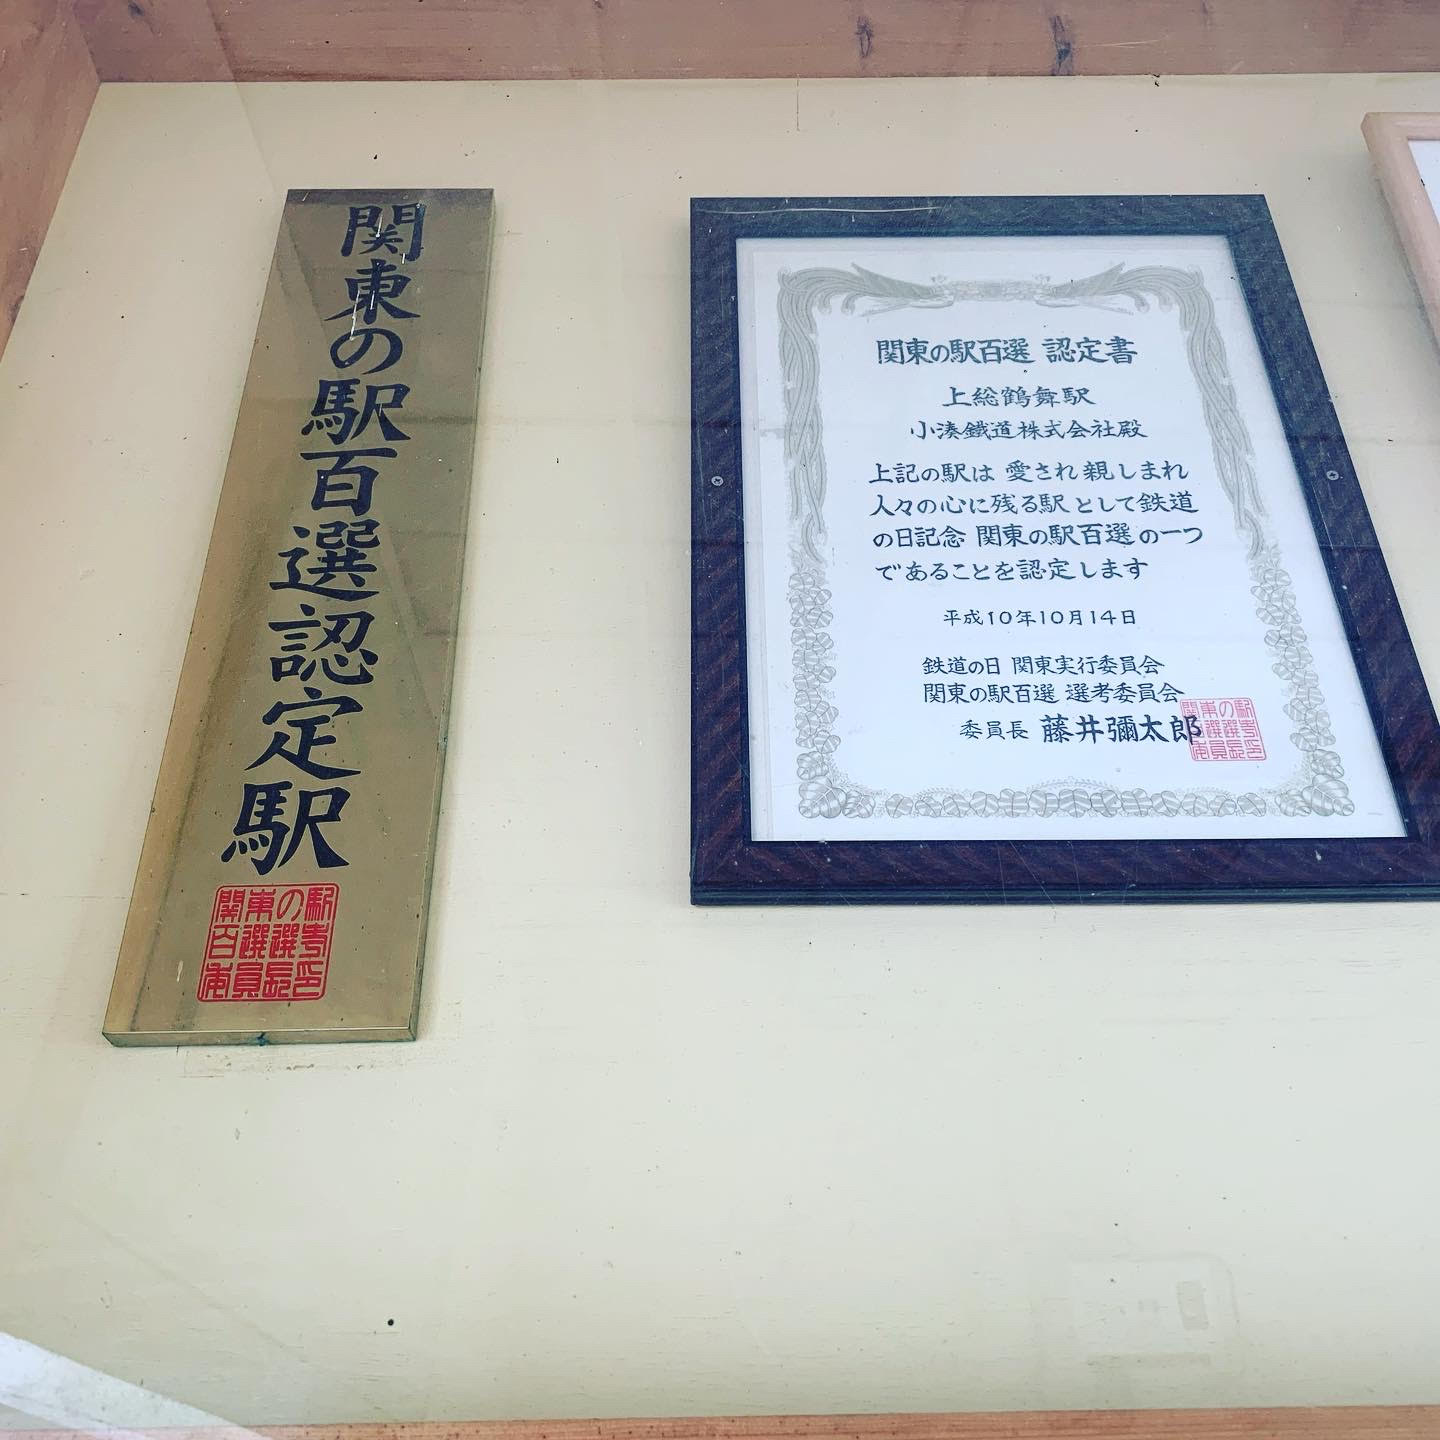 関東の駅百選認定駅
関東の駅
百選選考
委員長印
関東の駅百選 認定書
上総鶴舞駅
小湊鐵道株式会社殿
上記の駅は 愛され親しまれ
人々の心に残る駅として鉄道
の日記念 関東の駅百選の一つ
であることを認定します
平成10年10月14日
鉄道の日 関東実行委員会
関東の駅百選 選考委員会
委員長 藤井彌太郎
関東の駅
百選選考
委員長印